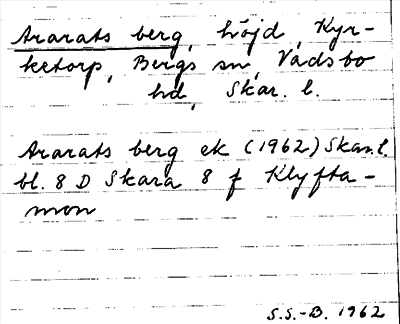 Ararats berg, höjd, Kyr-
ketorp, Bergs sn, Vadsbo
hd, Skar. l.
Ararats berg ek (1962) Skar. l.
bl. 8 D Skara 8 f Klyfta-
mon
S.S.-B. 1962